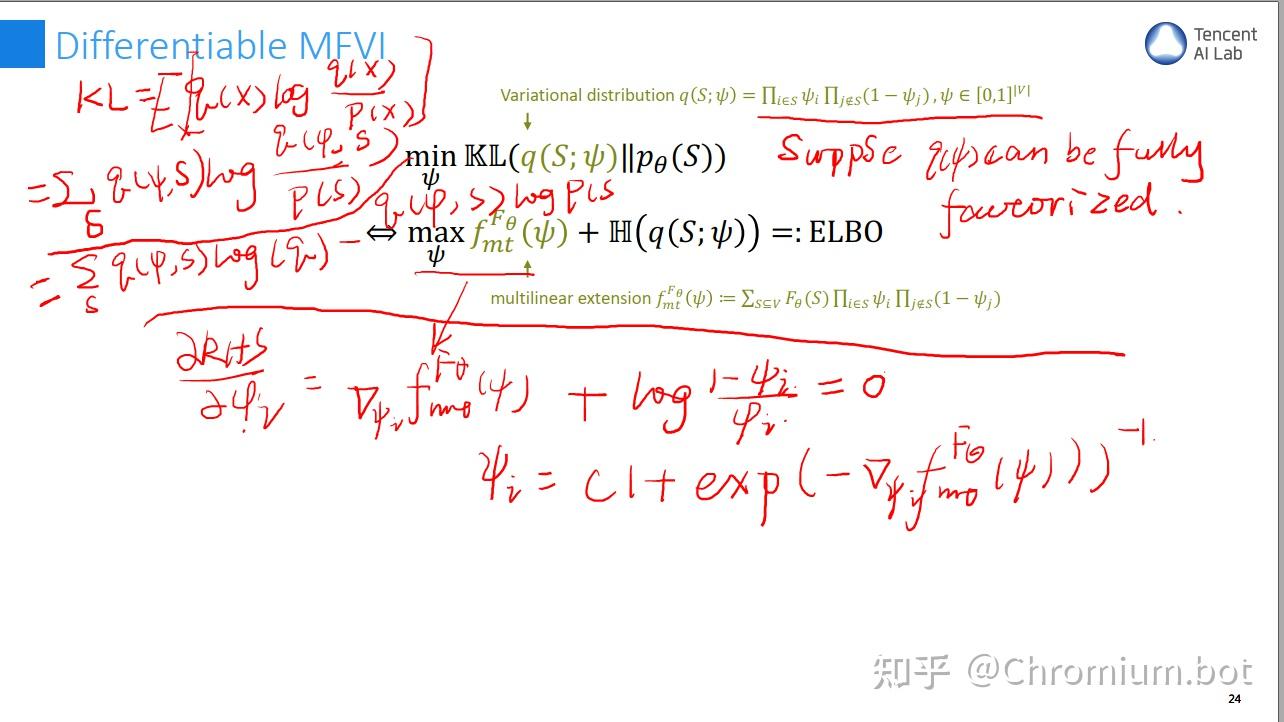 Differentiable MFVI
Tencent
AI Lab
KL = E_x[q(x) log q(x)/p(x)]
Variational distribution q(S;ψ) = ∏_{i∈S} ψ_i ∏_{j∉S}(1 − ψ_j), ψ ∈ [0,1]^{|V|}
= Σ_S q(φ,S) log q(φ,S)/P(S)
min_ψ 𝕂𝕃(q(S;ψ)‖p_θ(S))
Suppse q(ψ) can be fully
faworized.
= Σ_S q(φ,S) log(q) − q(φ,S) log P(S
⇔ max_ψ f_{mt}^{F_θ}(ψ) + ℍ(q(S;ψ)) =: ELBO
multilinear extension f_{mt}^{F_θ}(ψ) ≔ Σ_{S⊆V} F_θ(S) ∏_{i∈S} ψ_i ∏_{j∉S}(1 − ψ_j)
∂RHS/∂φ_i = ∇_{ψ_i} f_{mo}^{F_θ}(ψ) + log (1−ψ_i)/φ_i = 0
ψ_i = (1 + exp(−∇_{ψ_i} f_{mo}^{F_θ}(ψ)))^{−1}
知乎 @Chromium.bot
24